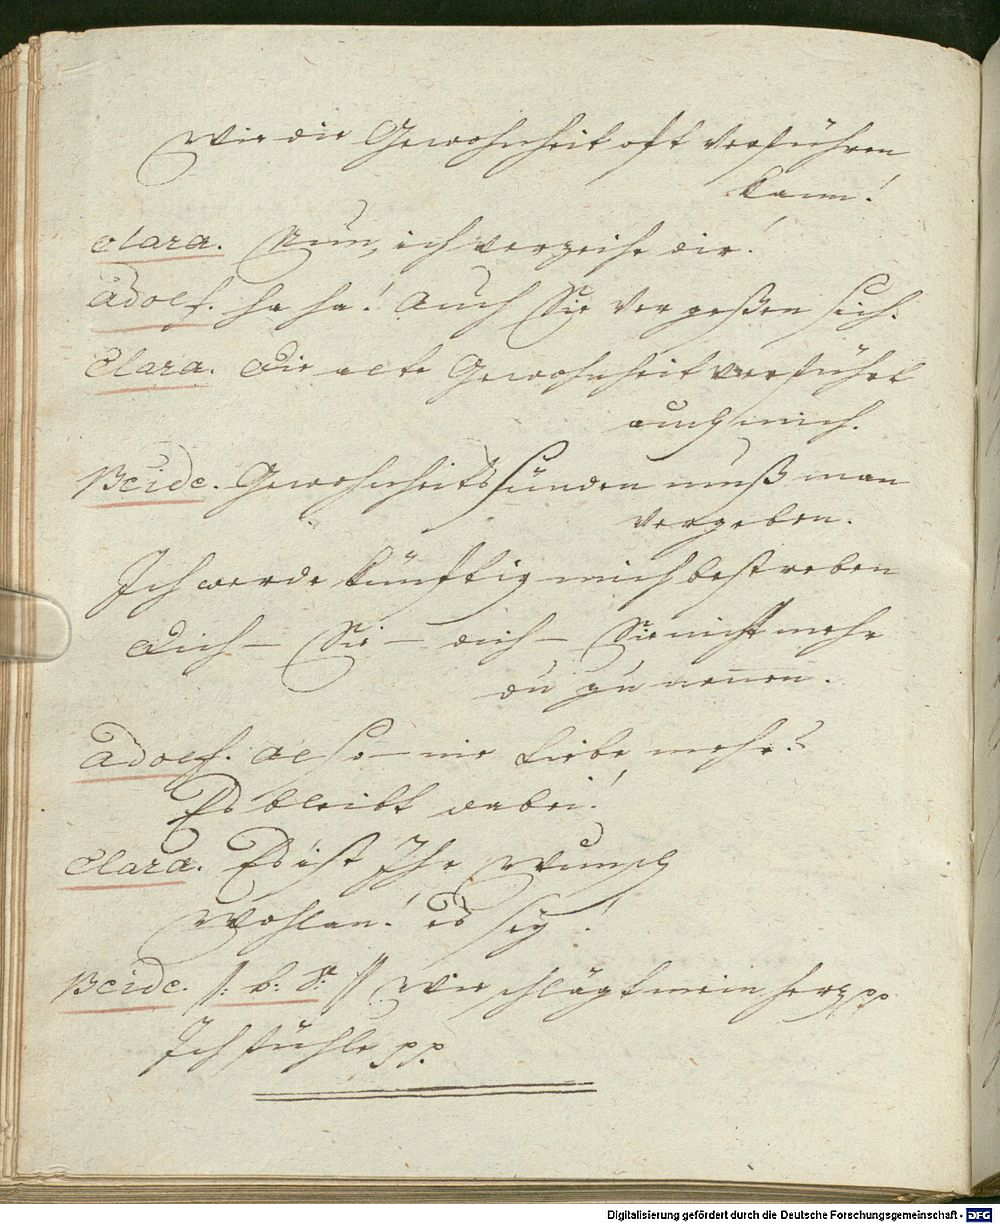 Wie die Gewohnheit oft verführen
kann!
Clara. Nun, ich verzeihe dir!
Adolf. Ha ha! Auch Sie vergeßen sich.
Clara. Die alte Gewohnheit verführt
auch mich.
Beide. Gewohnheits Sünden muß man
vergeben.
Ich werde künftig mich bestreben
Dich — Sie — dich — Sie nicht mehr
du zu nennen.
Adolf. Also — nie Liebe mehr?
Es bleibt dabei!
Clara. Es ist Ihr Wunsch
Wohlan! es sey!
Beide. //: b: S: // Wie schlägt mein Herz pp
Ich fühle pp.
Digitalisierung gefördert durch die Deutsche Forschungsgemeinschaft - DFG